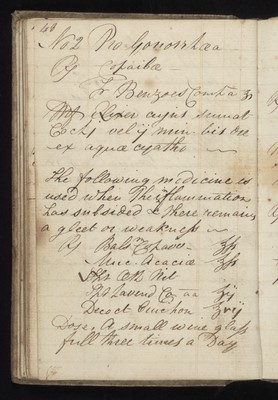 48
No 2 Pro Gonorrhœa
℞ Copaibæ
Tr Benzoes Comp aa ʒi
Elixer cujus sumat
Coch j vel ij min bis die
ex aquæ cyatho
The following medicine is
used when the inflammation
has subsided & there remains
a gleet or weakness
℞ Bals Copaiv ℥ss
Muc. Acaciæ ℥ss
Spt Æth Nit
Spt Lavend Co aa ʒij
Decoct Cinchon ℥vij
Dose, A small wine glass
full three times a Day